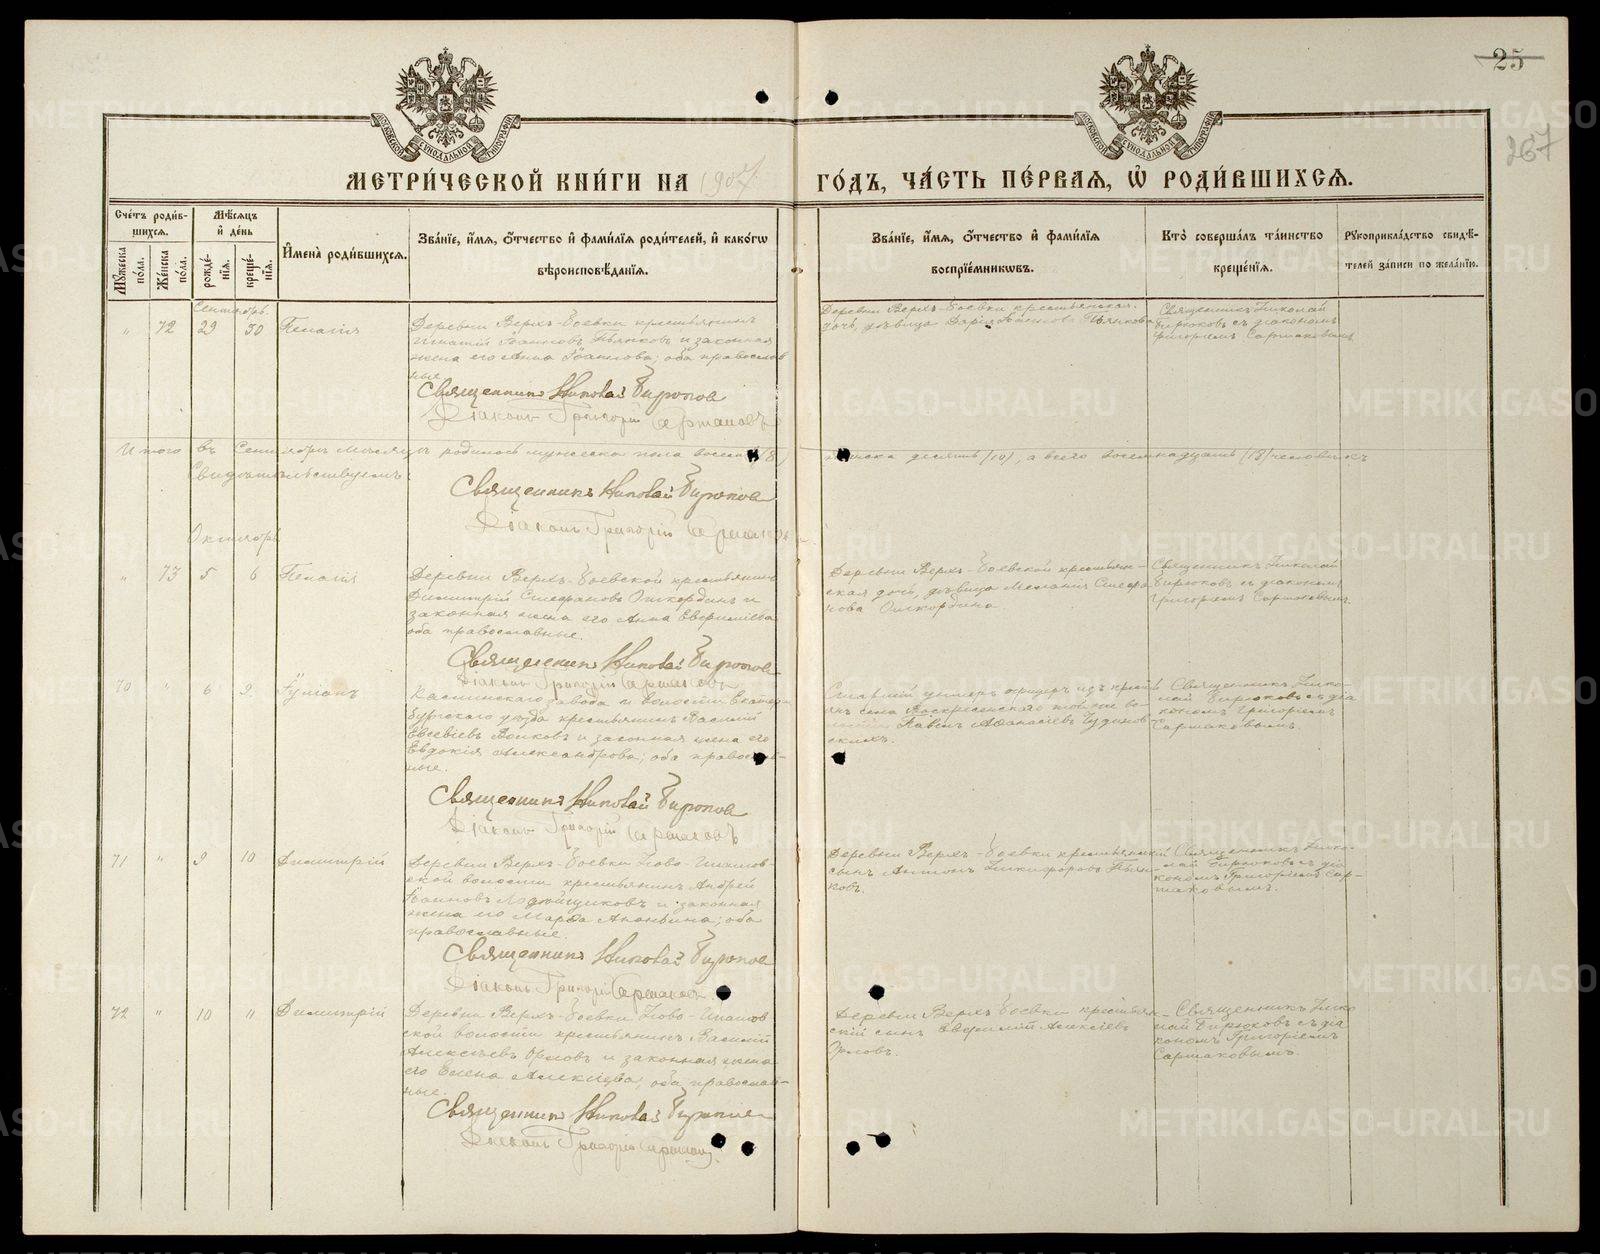 25
267
МОСКОВСКОЙ СѴНОДАЛЬНОЙ ТИПОГРАФІИ
МОСКОВСКОЙ СѴНОДАЛЬНОЙ ТИПОГРАФІИ
МЕТРИ́ЧЕСКОЙ КНИ́ГИ НА 1907
ГО́ДЪ, ЧА́СТЬ ПЕ́РВАЯ, Ѡ҆ РОДИ́ВШИХСѦ.
Сче́тъ роди́вшихсѧ.
Мѹ́жеска по́ла.
Же́нска по́ла.
Мѣ́сѧцъ и҆ де́нь
рожде́нїѧ.
креще́нїѧ.
И҆мена̀ роди́вшихсѧ.
Зва́нїе, и҆́мѧ, ѻ҆́тчество и҆ фами́лїѧ роди́телей, и҆ како́гѡ
вѣроисповѣ́данїѧ.
Зва́нїе, и҆́мѧ, ѻ҆́тчество и҆ фами́лїѧ
воспрїе́мникѡвъ.
Кто̀ соверша́лъ та́инство
креще́нїѧ.
Рѹкоприкла́дство свидѣ́-
телей за́писи по жела́нїю.
Сентябрь
" 72 29 30 Пелагія
Деревни Верхъ-Боевки крестьянинъ
Игнатій Іоанновъ Пьянковъ и законная
жена его Анна Іоаннова; оба православ
ные
Священникъ Николай Бирюковъ
Діаконъ Григорій Сармаковъ
Деревни Верхъ-Боевки крестьянская
дочь, дѣвица Дарія Пьянкова
Священникъ Николай
Бирюковъ съ діакономъ
Григоріемъ Сармаковымъ
Итого въ Сентябрѣ мѣсяцѣ родилось мужеска пола восемь (8) женска десять (10), а всего восемнадцать (18) человѣкъ
Свидѣтельствуемъ:
Священникъ Николай Бирюковъ
Діаконъ Григорій Сармаковъ
Октябрь
" 73 5 6 Пелагія
Деревни Верхъ-Боевской крестьянинъ
Димитрій Стефановъ Ошкординъ и
законная жена его Анна Евфиміева
оба православные.
Священникъ Николай Бирюковъ
Діаконъ Григорій Сармаковъ
Деревни Верхъ-Боевской крестьян-
ская дочь, дѣвица Меланія Стефа
нова Ошкордина
Священникъ Николай
Бирюковъ съ діакономъ
Григоріемъ Сармаковымъ.
70 " 6 9 Іуліанъ
Каслинскаго завода и волости Екатерин
бургскаго уѣзда крестьянинъ Василій
Евсевіевъ Волковъ и законная жена его
Евдокія Александрова; оба православ-
ные.
Священникъ Николай Бирюковъ
Діаконъ Григорій Сармаковъ
унтеръ офицеръ изъ крестья
янъ села Воскресенскаго той же во-
лости Павелъ Аѳанасіевъ Чудинов
скихъ.
Священникъ Нико-
лай Бирюковъ съ діа
кономъ Григоріемъ
Сармаковымъ.
71 " 9 10 Димитрій
Деревни Верхъ-Боевки Ново-Ипатов-
ской волости крестьянинъ Андрей
Іоанновъ Лодейщиковъ и законная
жена его Марѳа Ананьина; оба
православные.
Священникъ Николай Бирюковъ
Діаконъ Григорій Сармаковъ
Деревни Верхъ-Боевки крестьянскій
сынъ Антонъ Никифоровъ Пьян-
ковъ.
Священникъ Нико-
лай Бирюковъ съ діа
кономъ Григоріемъ Сар-
маковымъ.
72 " 10 " Димитрій
Деревни Верхъ-Боевки Ново-Ипатов-
ской волости крестьянинъ Василій
Алексѣевъ Орловъ и законная жена
его Елена Алексіева; оба православ-
ные.
Священникъ Николай Бирюковъ
Діаконъ Григорій Сармаковъ
Деревни Верхъ-Боевки крестьян-
скій сынъ Евфимій Алексіевъ
Орловъ.
Священникъ Нико
лай Бирюковъ съ діа
кономъ Григоріемъ
Сармаковымъ.
METRIKI.GASO-URAL.RU